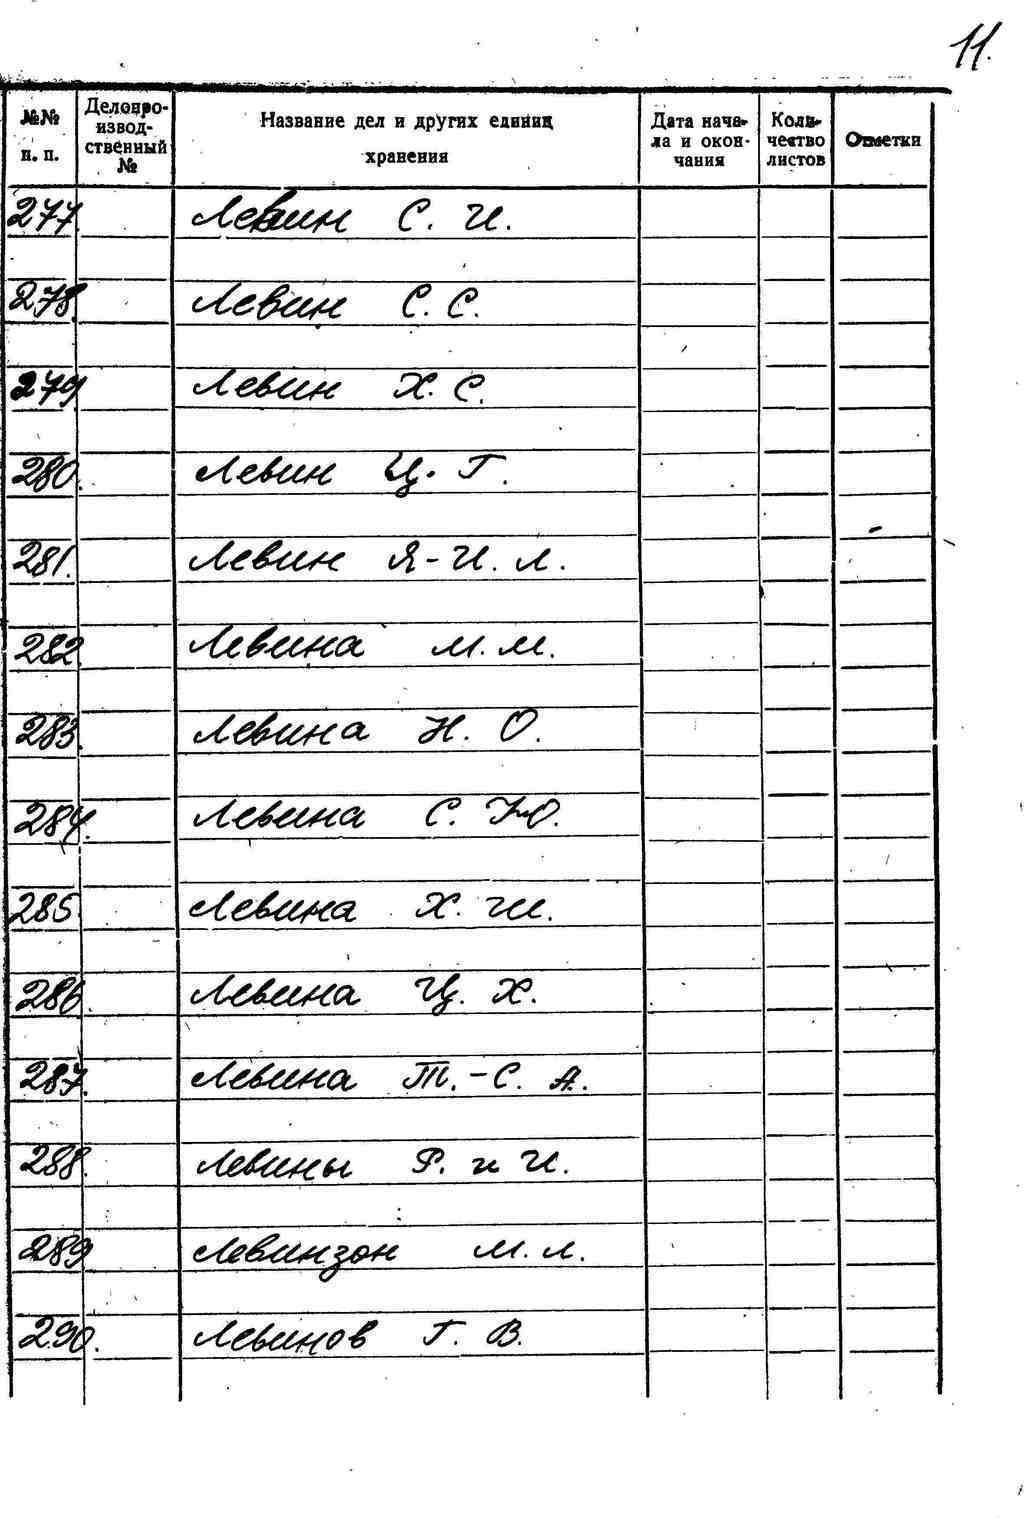 11.
№№ п. п. Делопроизводственный № Название дел и других единиц хранения Дата начала и окончания Количество листов Отметки
277. Левин С. И.
278. Левин С. С.
279. Левин Х. С.
280. Левин Ц. Г.
281. Левин Я-И. Л.
282. Левина М. М.
283. Левина Н. О.
284. Левина С. Ю.
285. Левина Х. Ш.
286. Левина Ц. Х.
287. Левина Т.-С. А.
288. Левины Р. и И.
289. Левинзон М. Л.
290. Левинов Г. В.